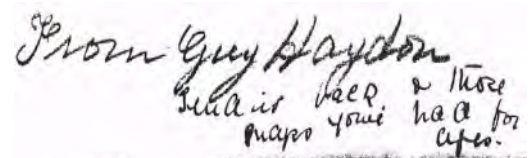 From Guy Haydon
Send us back a those
maps you've had for
ages.